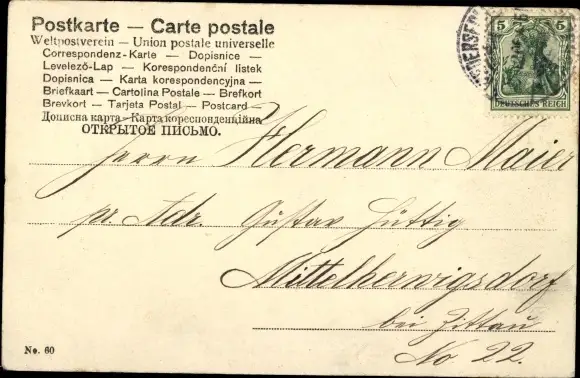 Postkarte — Carte postale
Weltpostverein — Union postale universelle
Correspondenz-Karte — Dopisnice —
Levelező-Lap — Korespondenční lístek
Dopisnica — Karta korespondencyjna —
Briefkaart — Cartolina Postale — Brefkort
Brevkort — Tarjeta Postal — Postcard
Дописна карта — Карта кореспонденційна
ОТКРЫТОЕ ПИСЬМО.
5 5
DEUTSCHES REICH
Herrn Hermann Maier
pr. Adr. Gustav Hüttig
Mittelherwigsdorf
bei Zittau
No 22.
No. 60